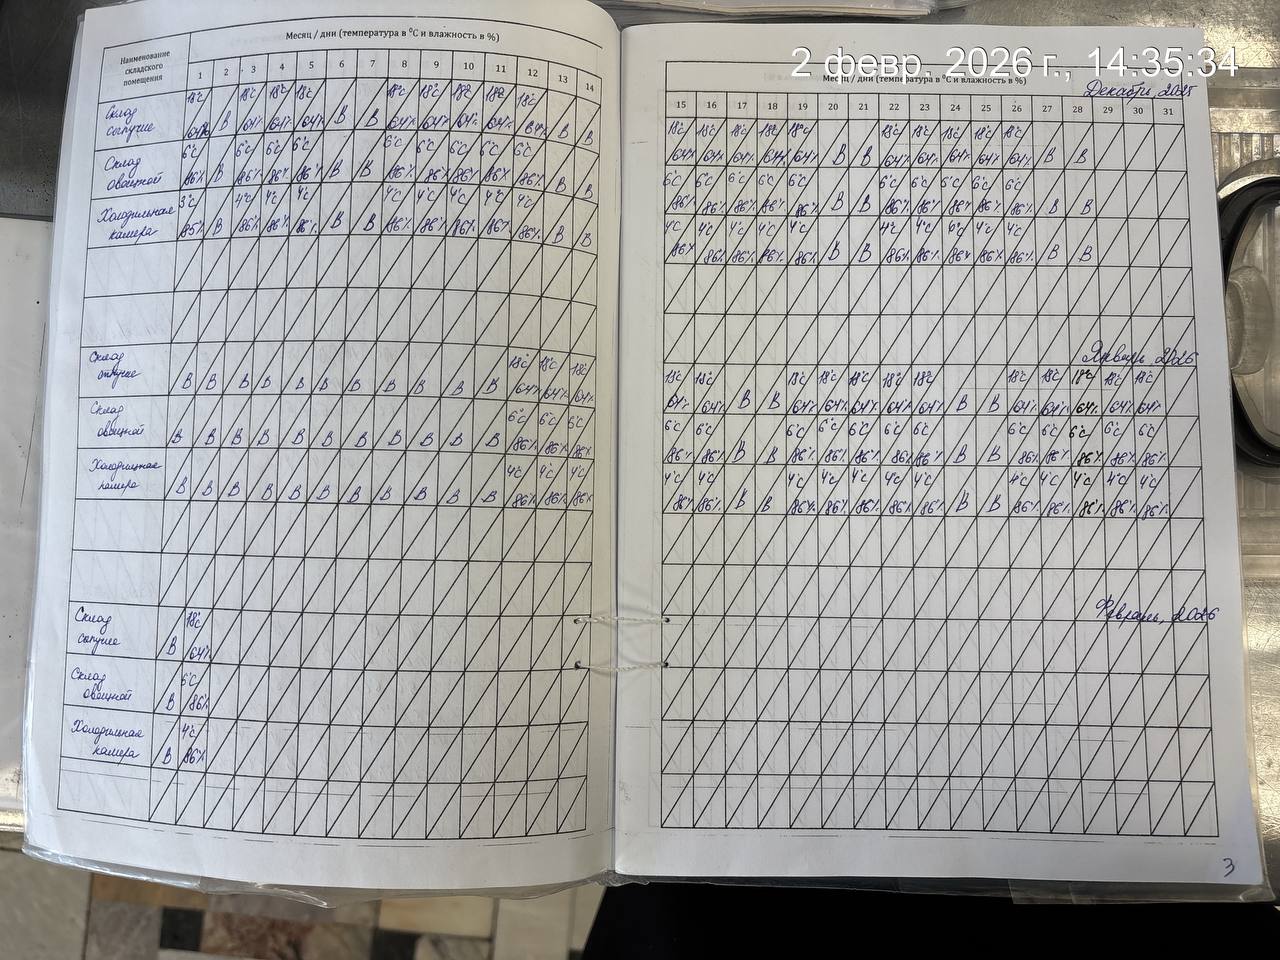 2 февр. 2026 г., 14:35:34
Наименование складского помещения
Месяц / дни (температура в °С и влажность в %)
1 2 3 4 5 6 7 8 9 10 11 12 13 14
Склад сыпучие
18°С 64% В 18°С 64% 18°С 64% 18°С 64% В В 18°С 64% 18°С 64% 18°С 64% 18°С 64% 18°С 64% В В
Склад овощной
6°С 86% В 6°С 86% 6°С 86% 6°С 86% В В 6°С 86% 6°С 86% 6°С 86% 6°С 86% 6°С 86% В В
Холодильная камера
3°С 85% В 4°С 86% 4°С 86% 4°С 86% В В 4°С 86% 4°С 86% 4°С 86% 4°С 86% 4°С 86% В В
Склад
В В В В В В В В В В В 18°С 64% 18°С 64% 18°С 64%
Склад овощной
В В В В В В В В В В В 6°С 86% 6°С 86% 6°С 86%
Холодильная камера
В В В В В В В В В В В 4°С 86% 4°С 86% 4°С 86%
Склад сыпучие
В 18°С 64%
Склад овощной
В 6°С 86%
Холодильная камера
В 4°С 86%
Месяц / дни (температура в °С и влажность в %)
Декабрь, 2025
15 16 17 18 19 20 21 22 23 24 25 26 27 28 29 30 31
18°С 64% 18°С 64% 18°С 64% 18°С 64% 18°С 64% В В 18°С 64% 18°С 64% 18°С 64% 18°С 64% 18°С 64% В В
6°С 86% 6°С 86% 6°С 86% 6°С 86% 6°С 86% В В 6°С 86% 6°С 86% 6°С 86% 6°С 86% 6°С 86% В В
4°С 86% 4°С 86% 4°С 86% 4°С 86% 4°С 86% В В 4°С 86% 4°С 86% 4°С 86% 4°С 86% 4°С 86% В В
Январь, 2026
18°С 64% 18°С 64% В В 18°С 64% 18°С 64% 18°С 64% 18°С 64% 18°С 64% В В 18°С 64% 18°С 64% 18°С 64% 18°С 64% 18°С 64%
6°С 86% 6°С 86% В В 6°С 86% 6°С 86% 6°С 86% 6°С 86% 6°С 86% В В 6°С 86% 6°С 86% 6°С 86% 6°С 86% 6°С 86%
4°С 86% 4°С 86% В В 4°С 86% 4°С 86% 4°С 86% 4°С 86% 4°С 86% В В 4°С 86% 4°С 86% 4°С 86% 4°С 86% 4°С 86%
Февраль, 2026
3